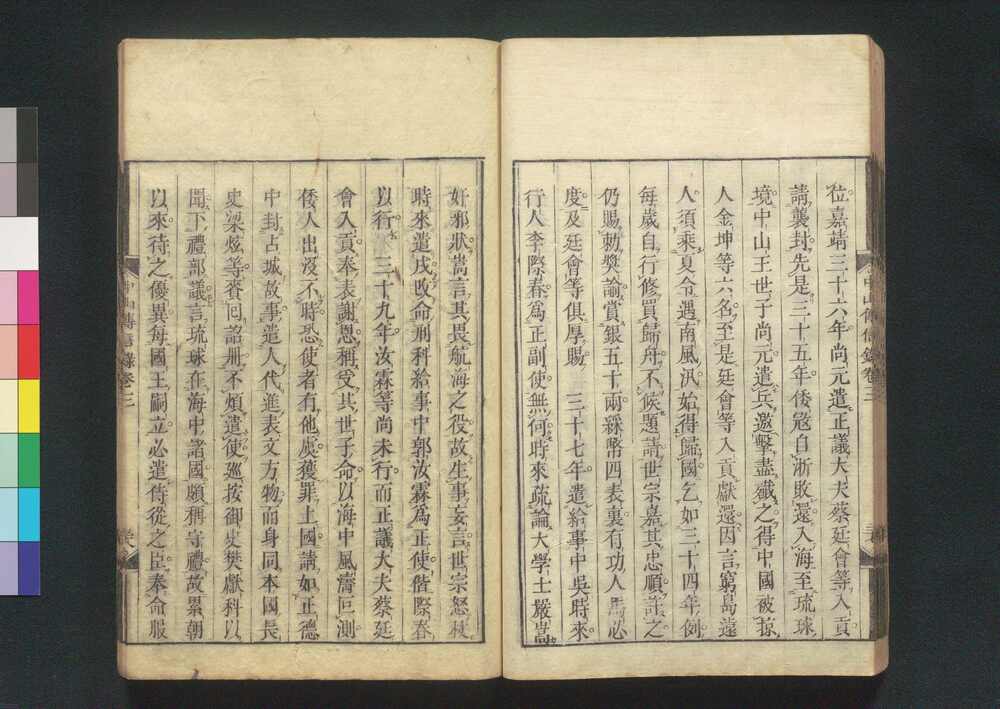 位嘉靖三十六年尚元遣正議大夫蔡廷會等入貢
請襲封先是三十五年倭寇自浙敗還入海至琉球
境中山王世子尚元遣兵邀擊盡殲之得中國被掠
人金坤等六名至是廷會等入貢獻還因言窮島遠
人須乘夏令遇南風汛始得歸國乞如三十四年例
每歲自行修買歸舟不候題請世宗嘉其忠順許之
仍賜勅獎諭賞銀五十兩綵幣四表裏有功人馬必
度及廷會等俱厚賜 三十七年遣給事中吳時來
行人李際春爲正副使無何時來疏論大學士嚴嵩
中山傳信錄卷三
奸邪狀嵩言其畏航海之役故生事妄言世宗怒杖
時來遣戍改命刑科給事中郭汝霖爲正使偕際春
以行 三十九年汝霖等尚未行而正議大夫蔡廷
會入貢奉表謝恩稱受其世子命以海中風濤叵測
倭人出沒不時恐使者有他虞獲罪上國請如正德
中封占城故事遣人代進表文方物而身同本國長
史梁炫等賫囘詔冊不煩遣使廵按御史樊獻科以
聞下禮部議言琉球在海中諸國頗稱守禮故累朝
以來待之優異每國王嗣立必遣侍從之臣奉命服
中山傳信錄卷三